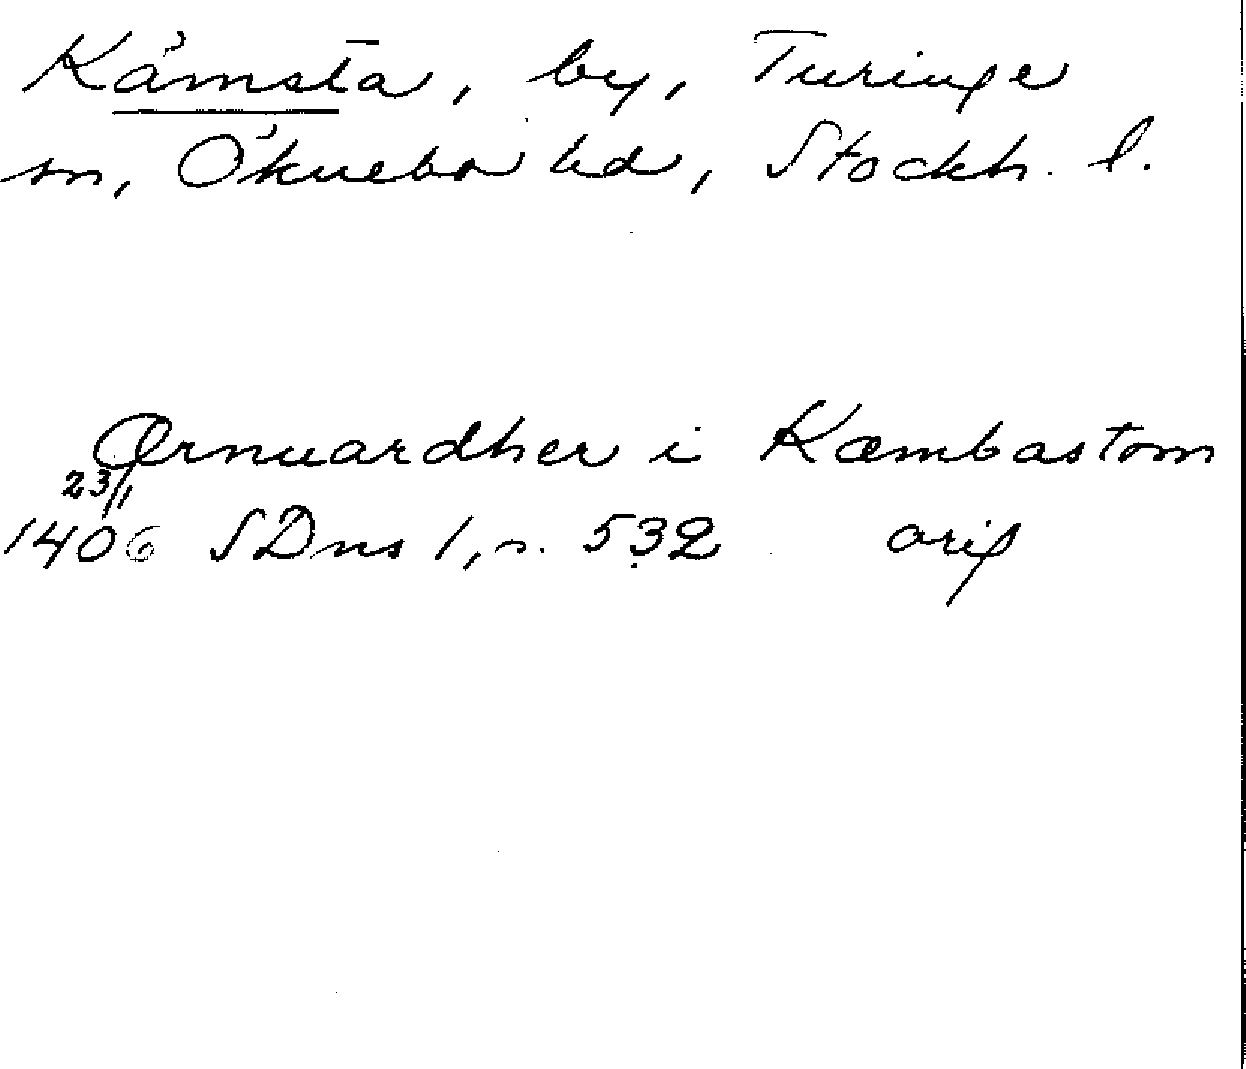 Kämsta, by, Turinge
sn, Öknebo hd, Stockh. l.
Ørnuardher i Kæmbastom
23/1
1406 SDns 1, n. 532 orig